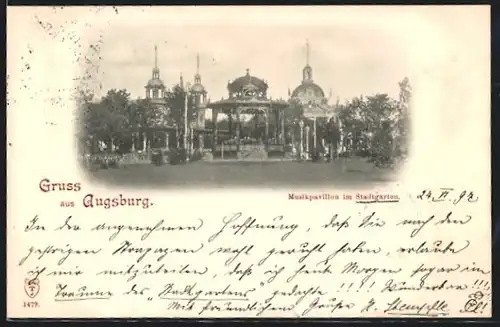 Gruss
aus Augsburg.
Musikpavillon im Stadtgarten.
24. VI. 97
In der angenehmen Hoffnung, daß Sie nach den
gestrigen Strapazen wohl geruht haben, erlaube
ich mir mitzuteilen, daß ich heute Morgen sogar im
Traume des "Stadtgartens" gedachte !!!! Wunderbar !!!
Mit freundlichem Grüßen
1479.